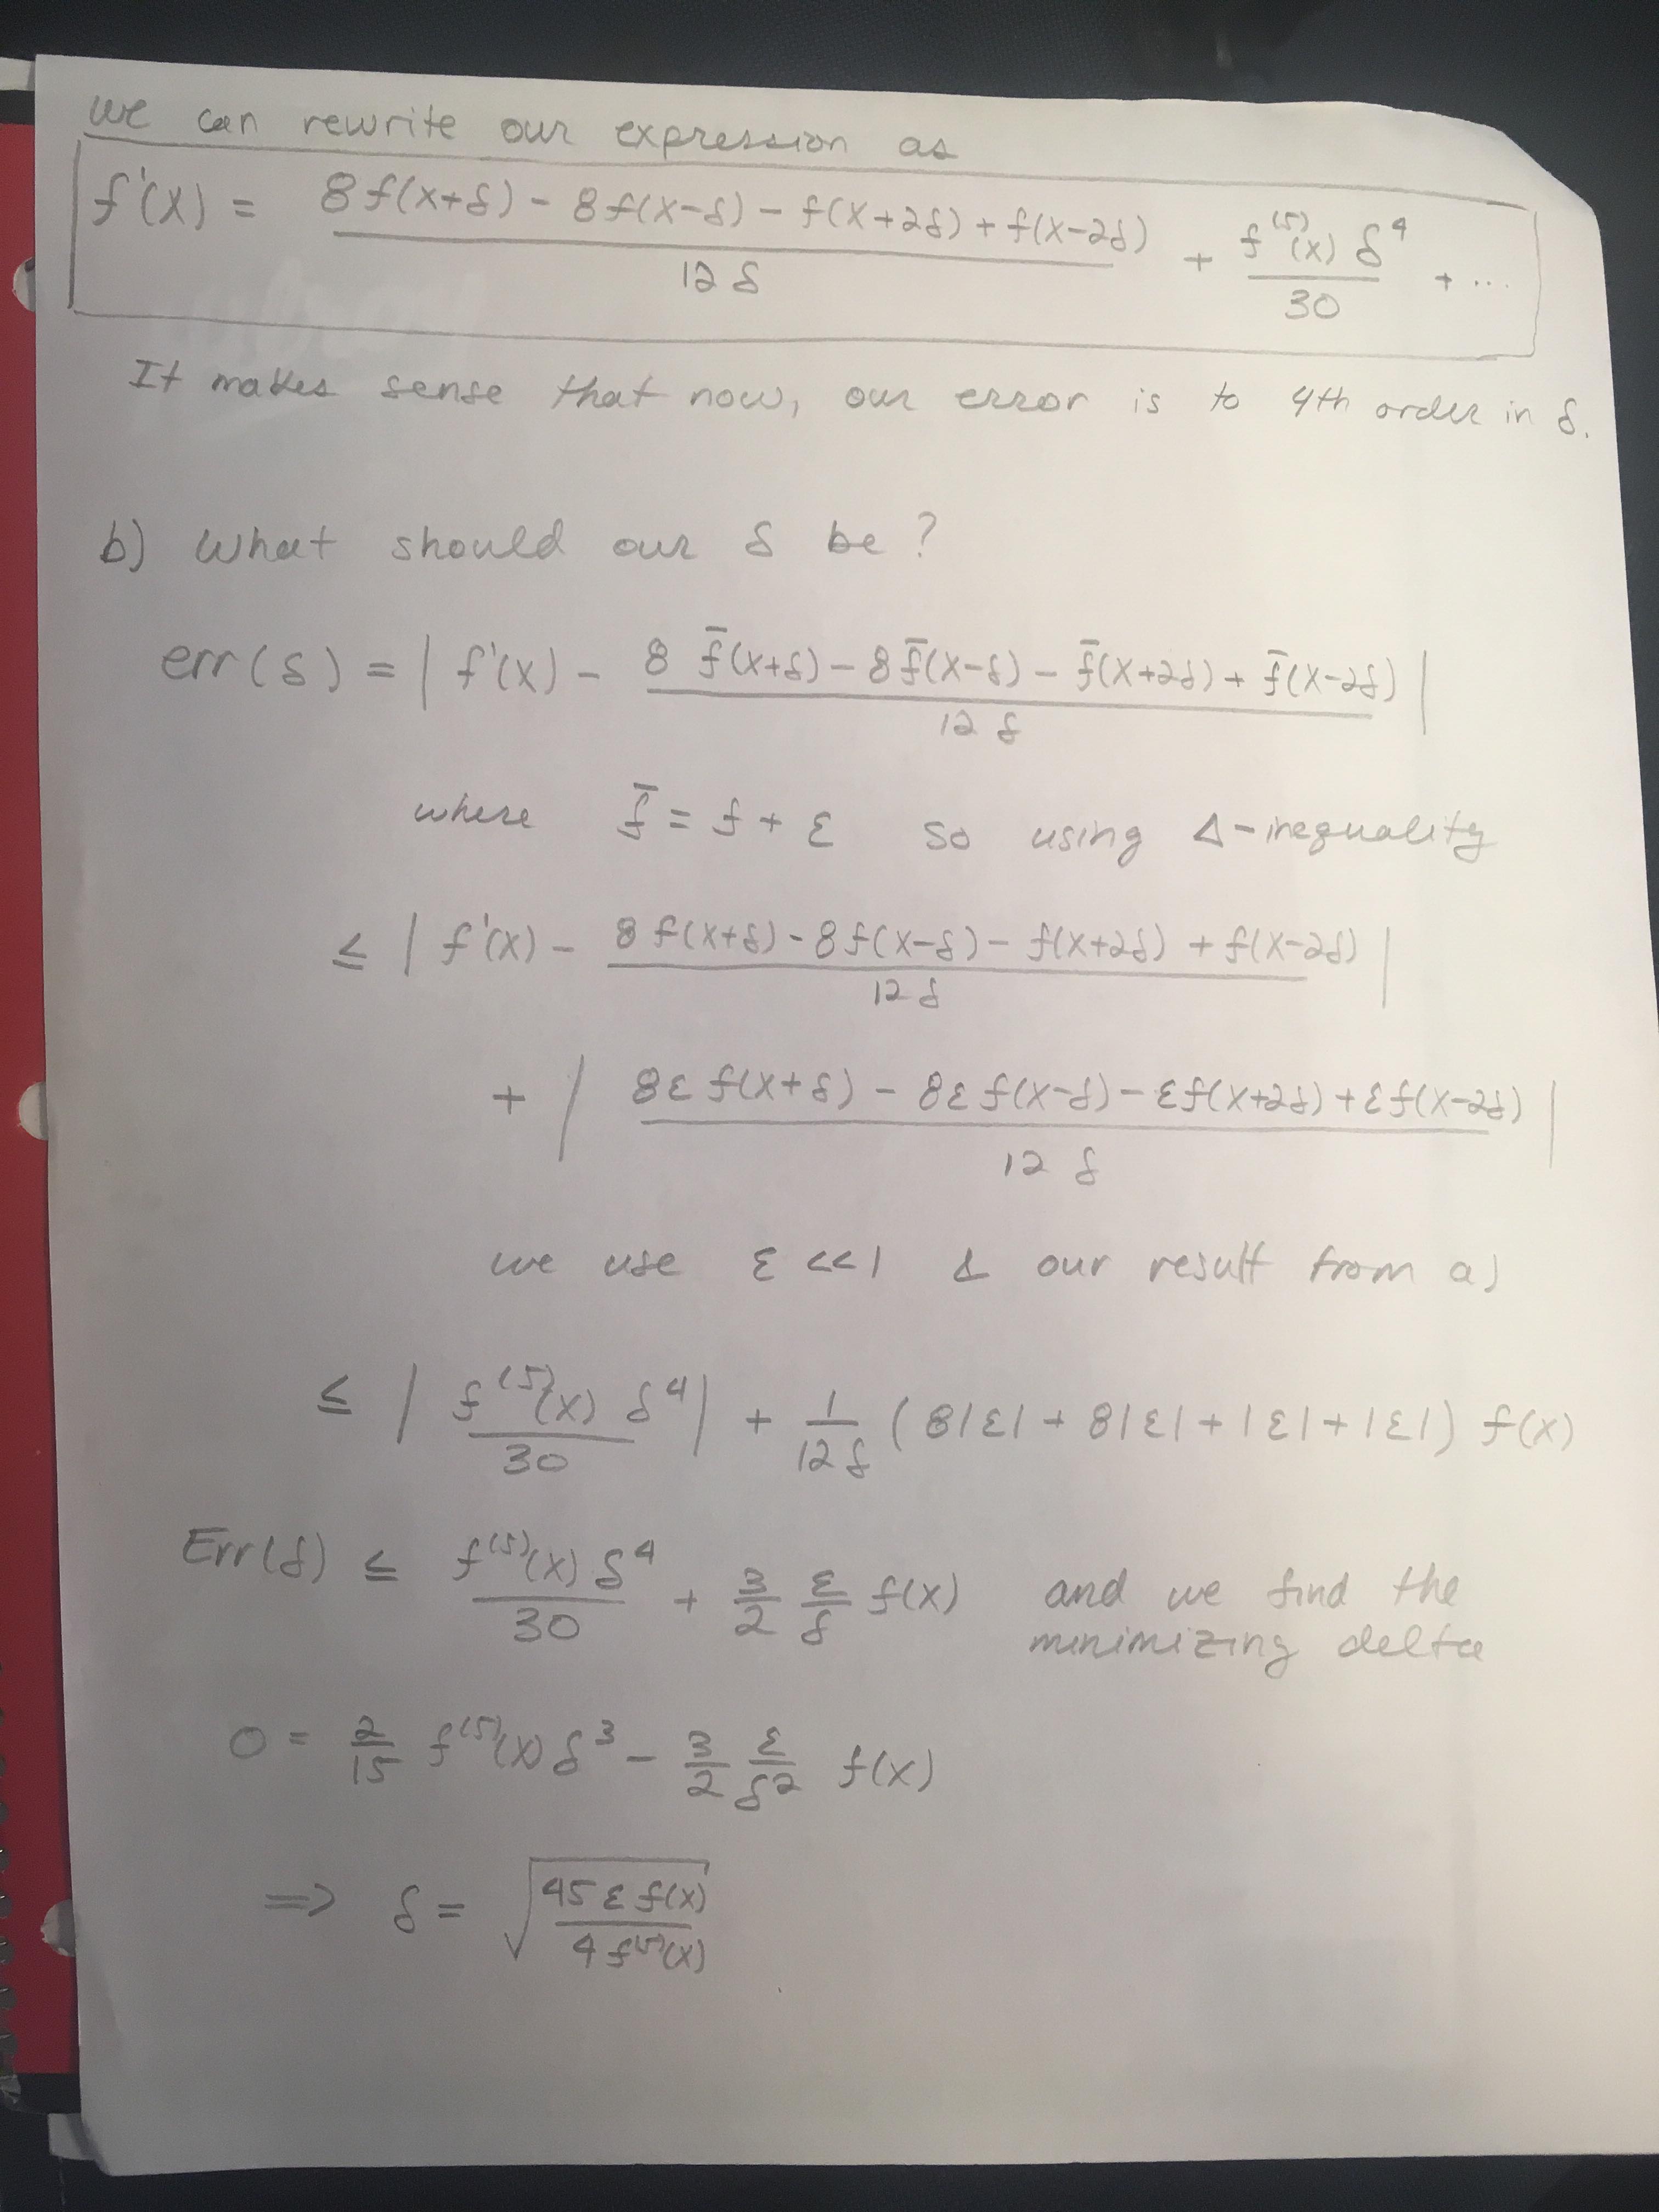 we can rewrite our expression as
f'(x) = (8f(x+δ) - 8f(x-δ) - f(x+2δ) + f(x-2δ)) / 12δ + f⁽⁵⁾(x) δ⁴ / 30 + ...
It makes sense that now, our error is to 4th order in δ.
b) What should our δ be?
err(δ) = | f'(x) - (8 f̄(x+δ) - 8f̄(x-δ) - f̄(x+2δ) + f̄(x-2δ)) / 12δ |
where f̄ = f + ε so using Δ-inequality
≤ | f'(x) - (8f(x+δ) - 8f(x-δ) - f(x+2δ) + f(x-2δ)) / 12δ |
+ | (8ε f(x+δ) - 8ε f(x-δ) - εf(x+2δ) + εf(x-2δ)) / 12δ |
we use ε <<1 & our result from a)
≤ | f⁽⁵⁾(x) δ⁴ / 30 | + 1/12δ (8|ε| + 8|ε| + |ε| + |ε|) f(x)
Err(δ) ≤ f⁽⁵⁾(x) δ⁴ / 30 + 3/2 ε/δ f(x) and we find the
minimizing delta
0 = 2/15 f⁽⁵⁾(x) δ³ - 3/2 ε/δ² f(x)
=> δ = √(45 ε f(x) / 4 f⁽⁵⁾(x))